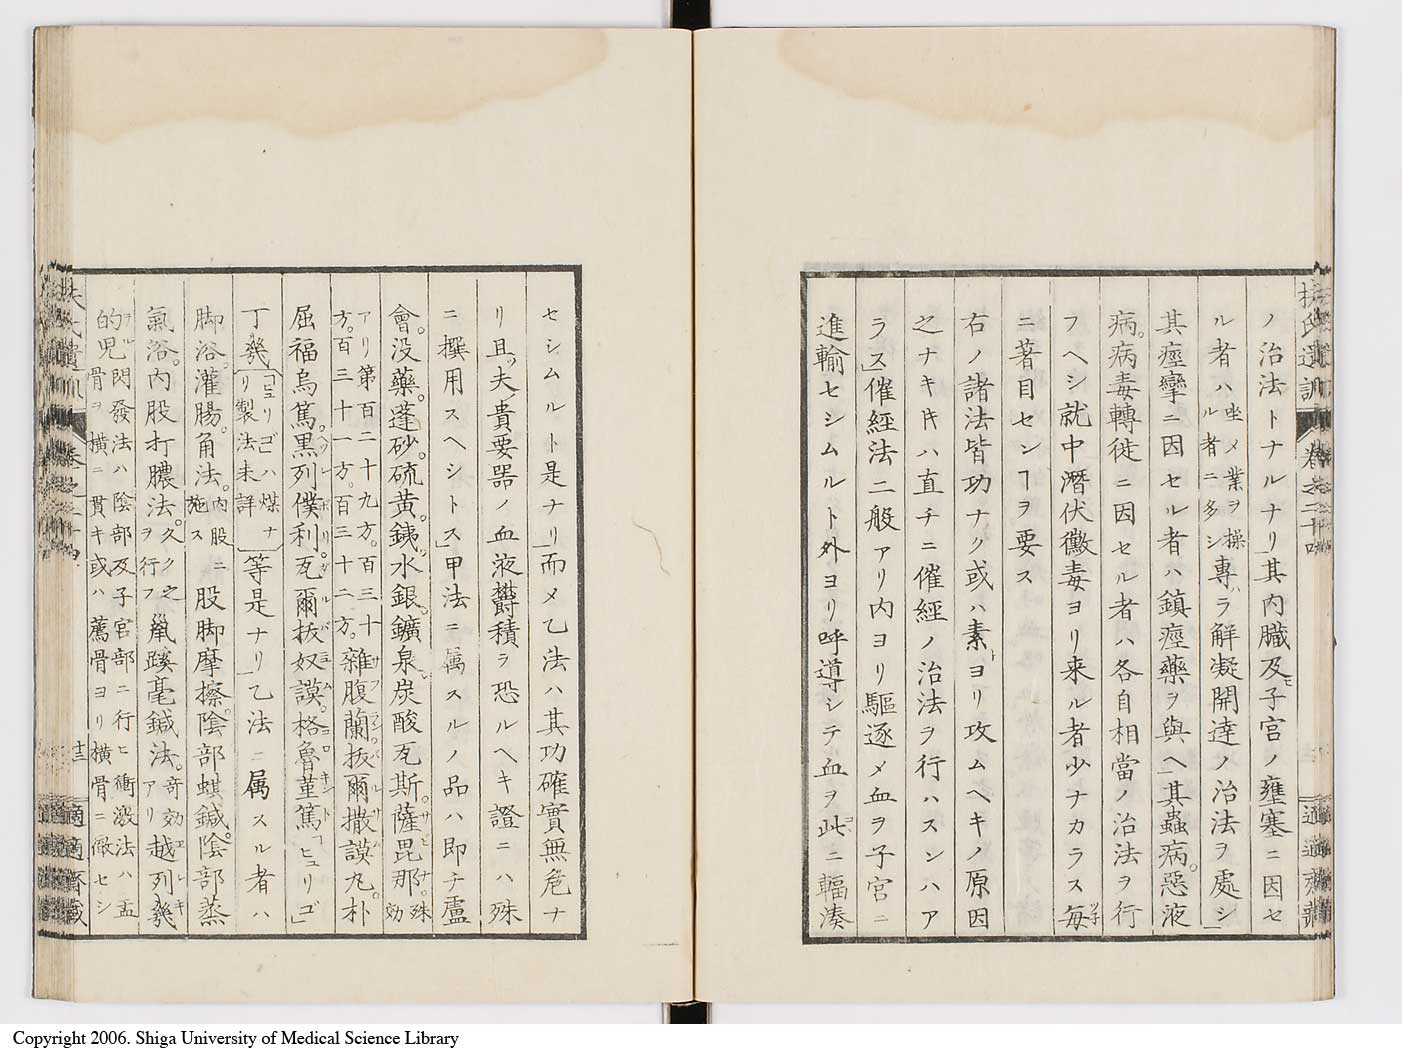 扶氏遺訓 卷之二十四 適適齋藏
ノ治法トナルナリ」其内臓及ヒ子宮ノ壅塞ニ因セ
ル者ハ坐メ業ヲ操ル者ニ多シ專ハラ解凝開達ノ治法ヲ處シ」
其痙攣ニ因セル者ハ鎮痙藥ヲ與ヘ」其蟲病。惡液
病。病毒轉徙ニ因セル者ハ各自相當ノ治法ヲ行
フヘシ就中潛伏黴毒ヨリ来ル者少ナカラス毎ツ子
ニ著目センヿヲ要ス
右ノ諸法皆功ナク或ハ素トヨリ攻ムヘキノ原因
之ナキ片ハ直チニ催經ノ治法ヲ行ハスンハア
ラス」催經法二般アリ内ヨリ驅逐メ血ヲ子宮ニ
進輸セシムルト外ヨリ呼導シテ血ヲ此コヽニ輻湊
セシムルト是ナリ」而メ乙法ハ其功確實無危ナ
リ且ツ夫レ貴要器ノ血液欝積ヲ恐ルヘキ證ニハ殊
ニ撰用スヘシトス」甲法ニ属スルノ品ハ即チ盧
會。没藥。蓬砂。硫黄。銕。水銀。鑛泉。炭酸瓦斯。薩毘那サビナ。殊効
アリ第百二十九方。百三十方。百三十一方。百三十二方。雜腹蘭サフラン。抜爾撒謨バルサム丸。朴
屈福烏篤。黒列僕利ヘレボリ。瓦爾抜奴謨ガルバニュム。格魯菫篤コロキント「ヒュリゴ」
丁幾「ヒュリゴ」ハ煤ナリ製法未詳等是ナリ」乙法ニ属スル者ハ
脚浴。灌腸。角法。内股ニ施ス股脚摩擦。陰部蜞鍼。陰部蒸
氣浴。内股打膿法。久クク之ヲ行フ鼠蹊毫鍼法。奇効アリ越列幾エレキ
的兒テル閃發法ハ陰部及子宮部ニ行ヒ衝激法ハ盂骨ヲ横ニ貫キ或ハ薦骨ヨリ横骨ニ徹セシ
十三 適適齋藏
Copyright 2006. Shiga University of Medical Science Library